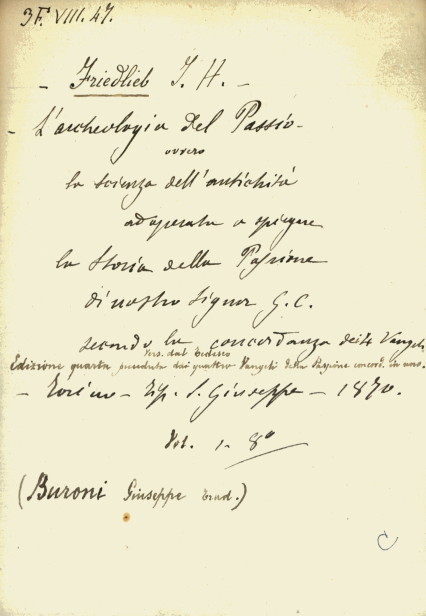 3F. VIII. 47.
- Friedlieb J. H. -
- L'archeologia del Passio-
ovvero
la scienza dell'antichità
adoperata a spiegare
la Storia della Passione
di nostro Signor G. C.
secondo la concordanza dei 4 Vangeli
Vers. dal tedesco
Edizione quarta preceduta dai quattro Vangeli della Passione concord. in uno.
- Torino - Tip. S. Giuseppe - 1870.
Vol. 1. 8°
(Buroni Giuseppe trad.)
C